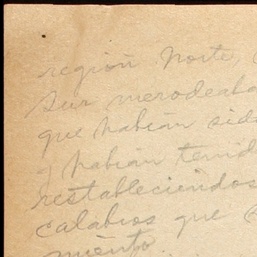 región Norte,
Sur merodeaba
que habían sido
q habían tenid
restableciendos
calabros que
miento.